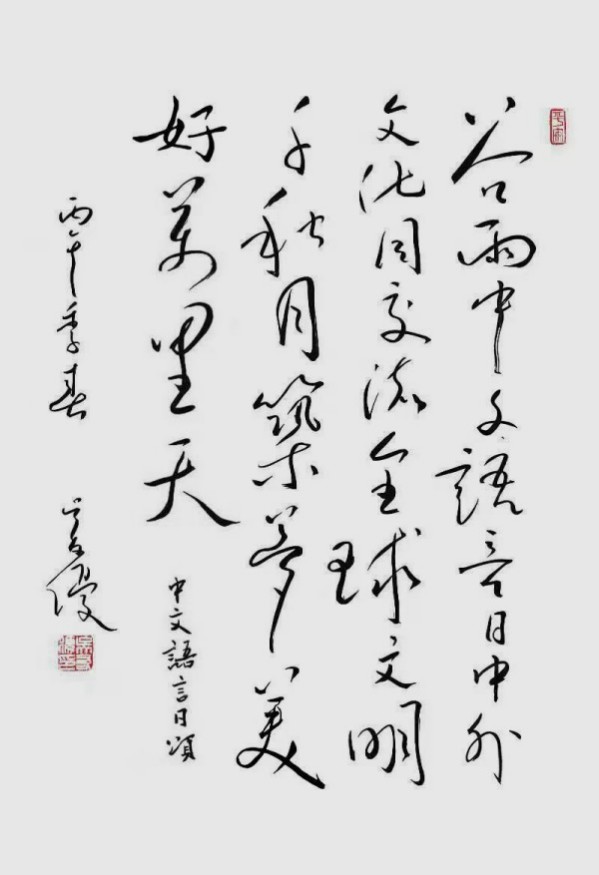 谷雨中文語言日中外
文化同交流全球文明
千秋月築夢美
好萬里天
中文語言日頌
丙午季春
優